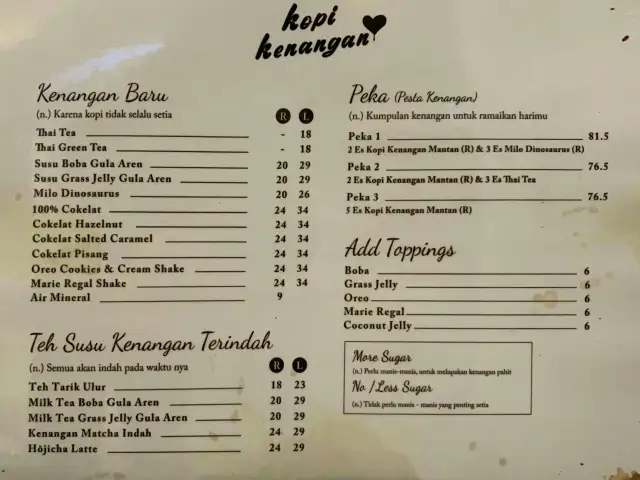 kopi
kenangan
Kenangan Baru
(n.) Karena kopi tidak selalu setia
R L
Thai Tea - 18
Thai Green Tea - 18
Susu Boba Gula Aren 20 29
Susu Grass Jelly Gula Aren 20 29
Milo Dinosaurus 20 26
100% Cokelat 24 34
Cokelat Hazelnut 24 34
Cokelat Salted Caramel 24 34
Cokelat Pisang 24 34
Oreo Cookies & Cream Shake 24 34
Marie Regal Shake 24 34
Air Mineral 9
Teh Susu Kenangan Terindah
(n.) Semua akan indah pada waktu nya
R L
Teh Tarik Ulur 18 23
Milk Tea Boba Gula Aren 20 29
Milk Tea Grass Jelly Gula Aren 20 29
Kenangan Matcha Indah 24 29
Hōjicha Latte 24 29
Peka (Pesta Kenangan)
(n.) Kumpulan kenangan untuk ramaikan harimu
Peka 1 81.5
2 Es Kopi Kenangan Mantan (R) & 3 Es Milo Dinosaurus (R)
Peka 2 76.5
2 Es Kopi Kenangan Mantan (R) & 3 Es Thai Tea
Peka 3 76.5
5 Es Kopi Kenangan Mantan (R)
Add Toppings
Boba 6
Grass Jelly 6
Oreo 6
Marie Regal 6
Coconut Jelly 6
More Sugar
(n.) Perlu manis-manis, untuk melupakan kenangan pahit
No / Less Sugar
(n.) Tidak perlu manis - manis yang penting setia